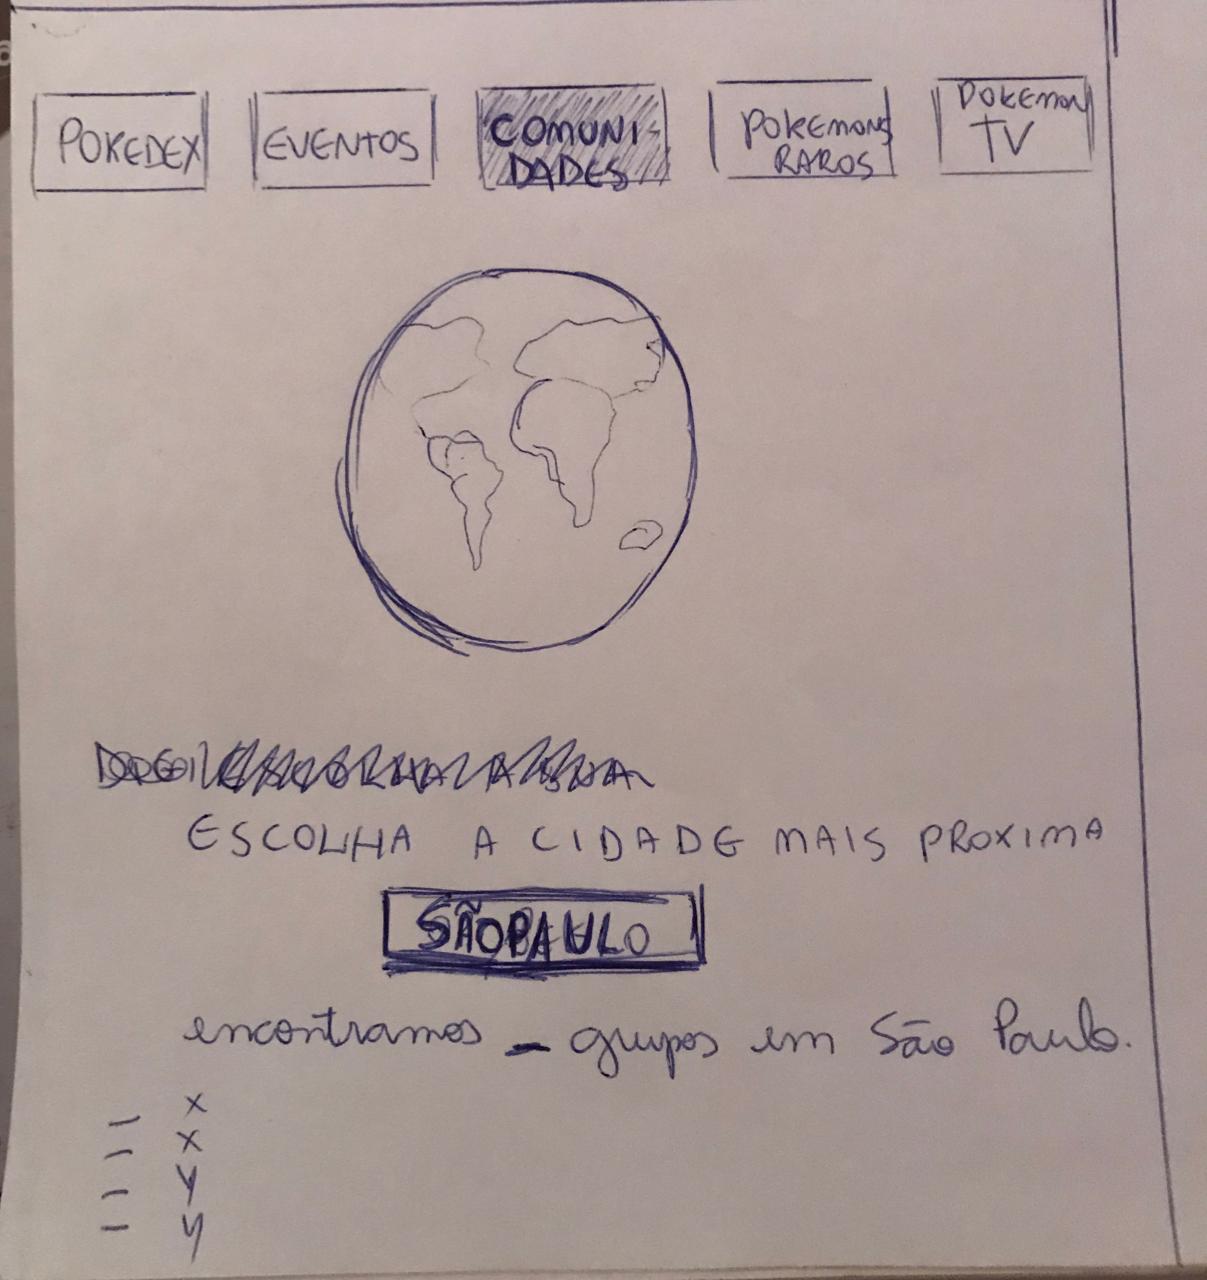 POKEDEX
EVENTOS
COMUNI-
DADES
POKEMONS
RAROS
POKEMON
TV
ESCOLHA A CIDADE MAIS PROXIMA
SÃO PAULO
encontramos _ grupos em São Paulo.
- X
- X
- Y
- Y